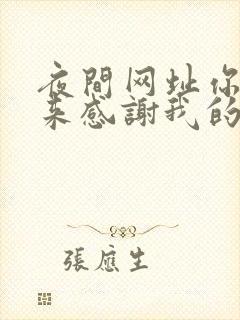 夜間网址你
来感謝我的
張應生